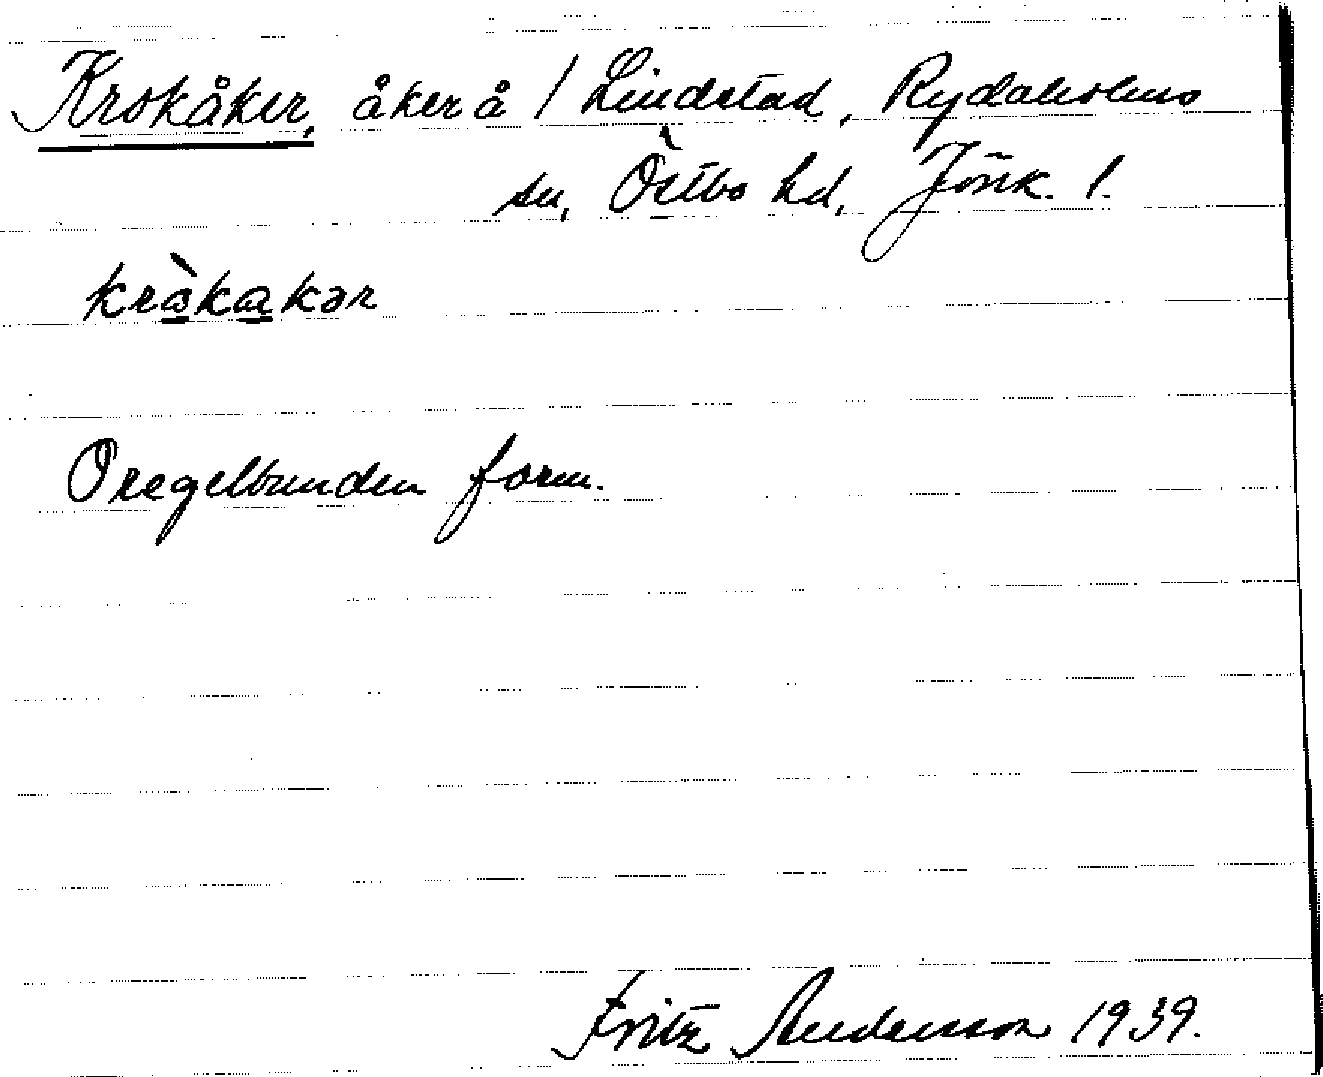 Krokåker, åker å / Lindstad, Rydaholms
sn, Östbo hd, Jönk. l.
kròkakər
Oregelbunden form.
Fritz Andersson 1939.